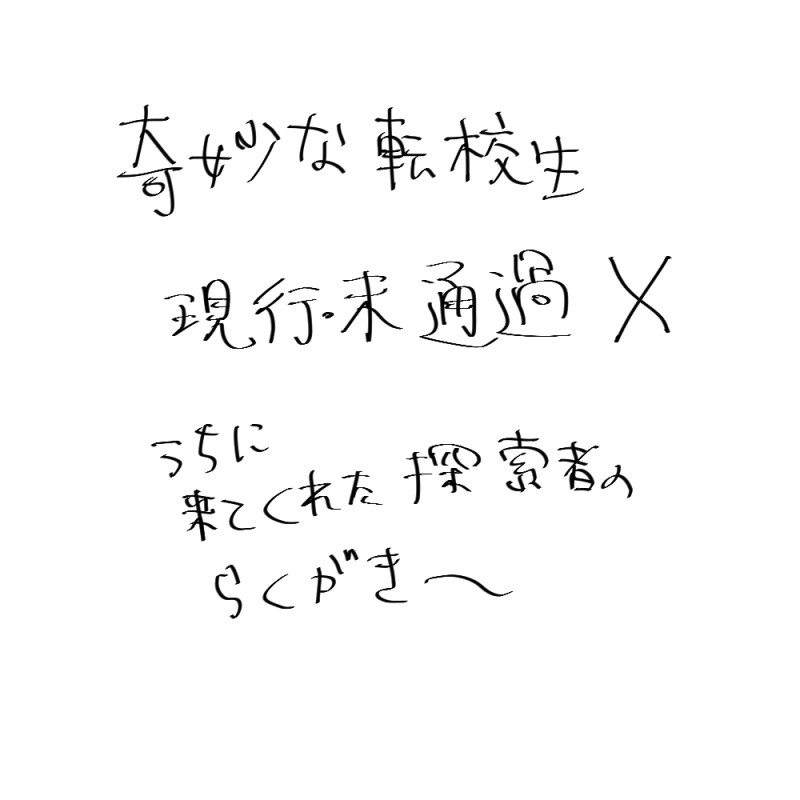 奇妙な転校生
現行・未通過 ✕
うちに
来てくれた探索者の
らくがき〜